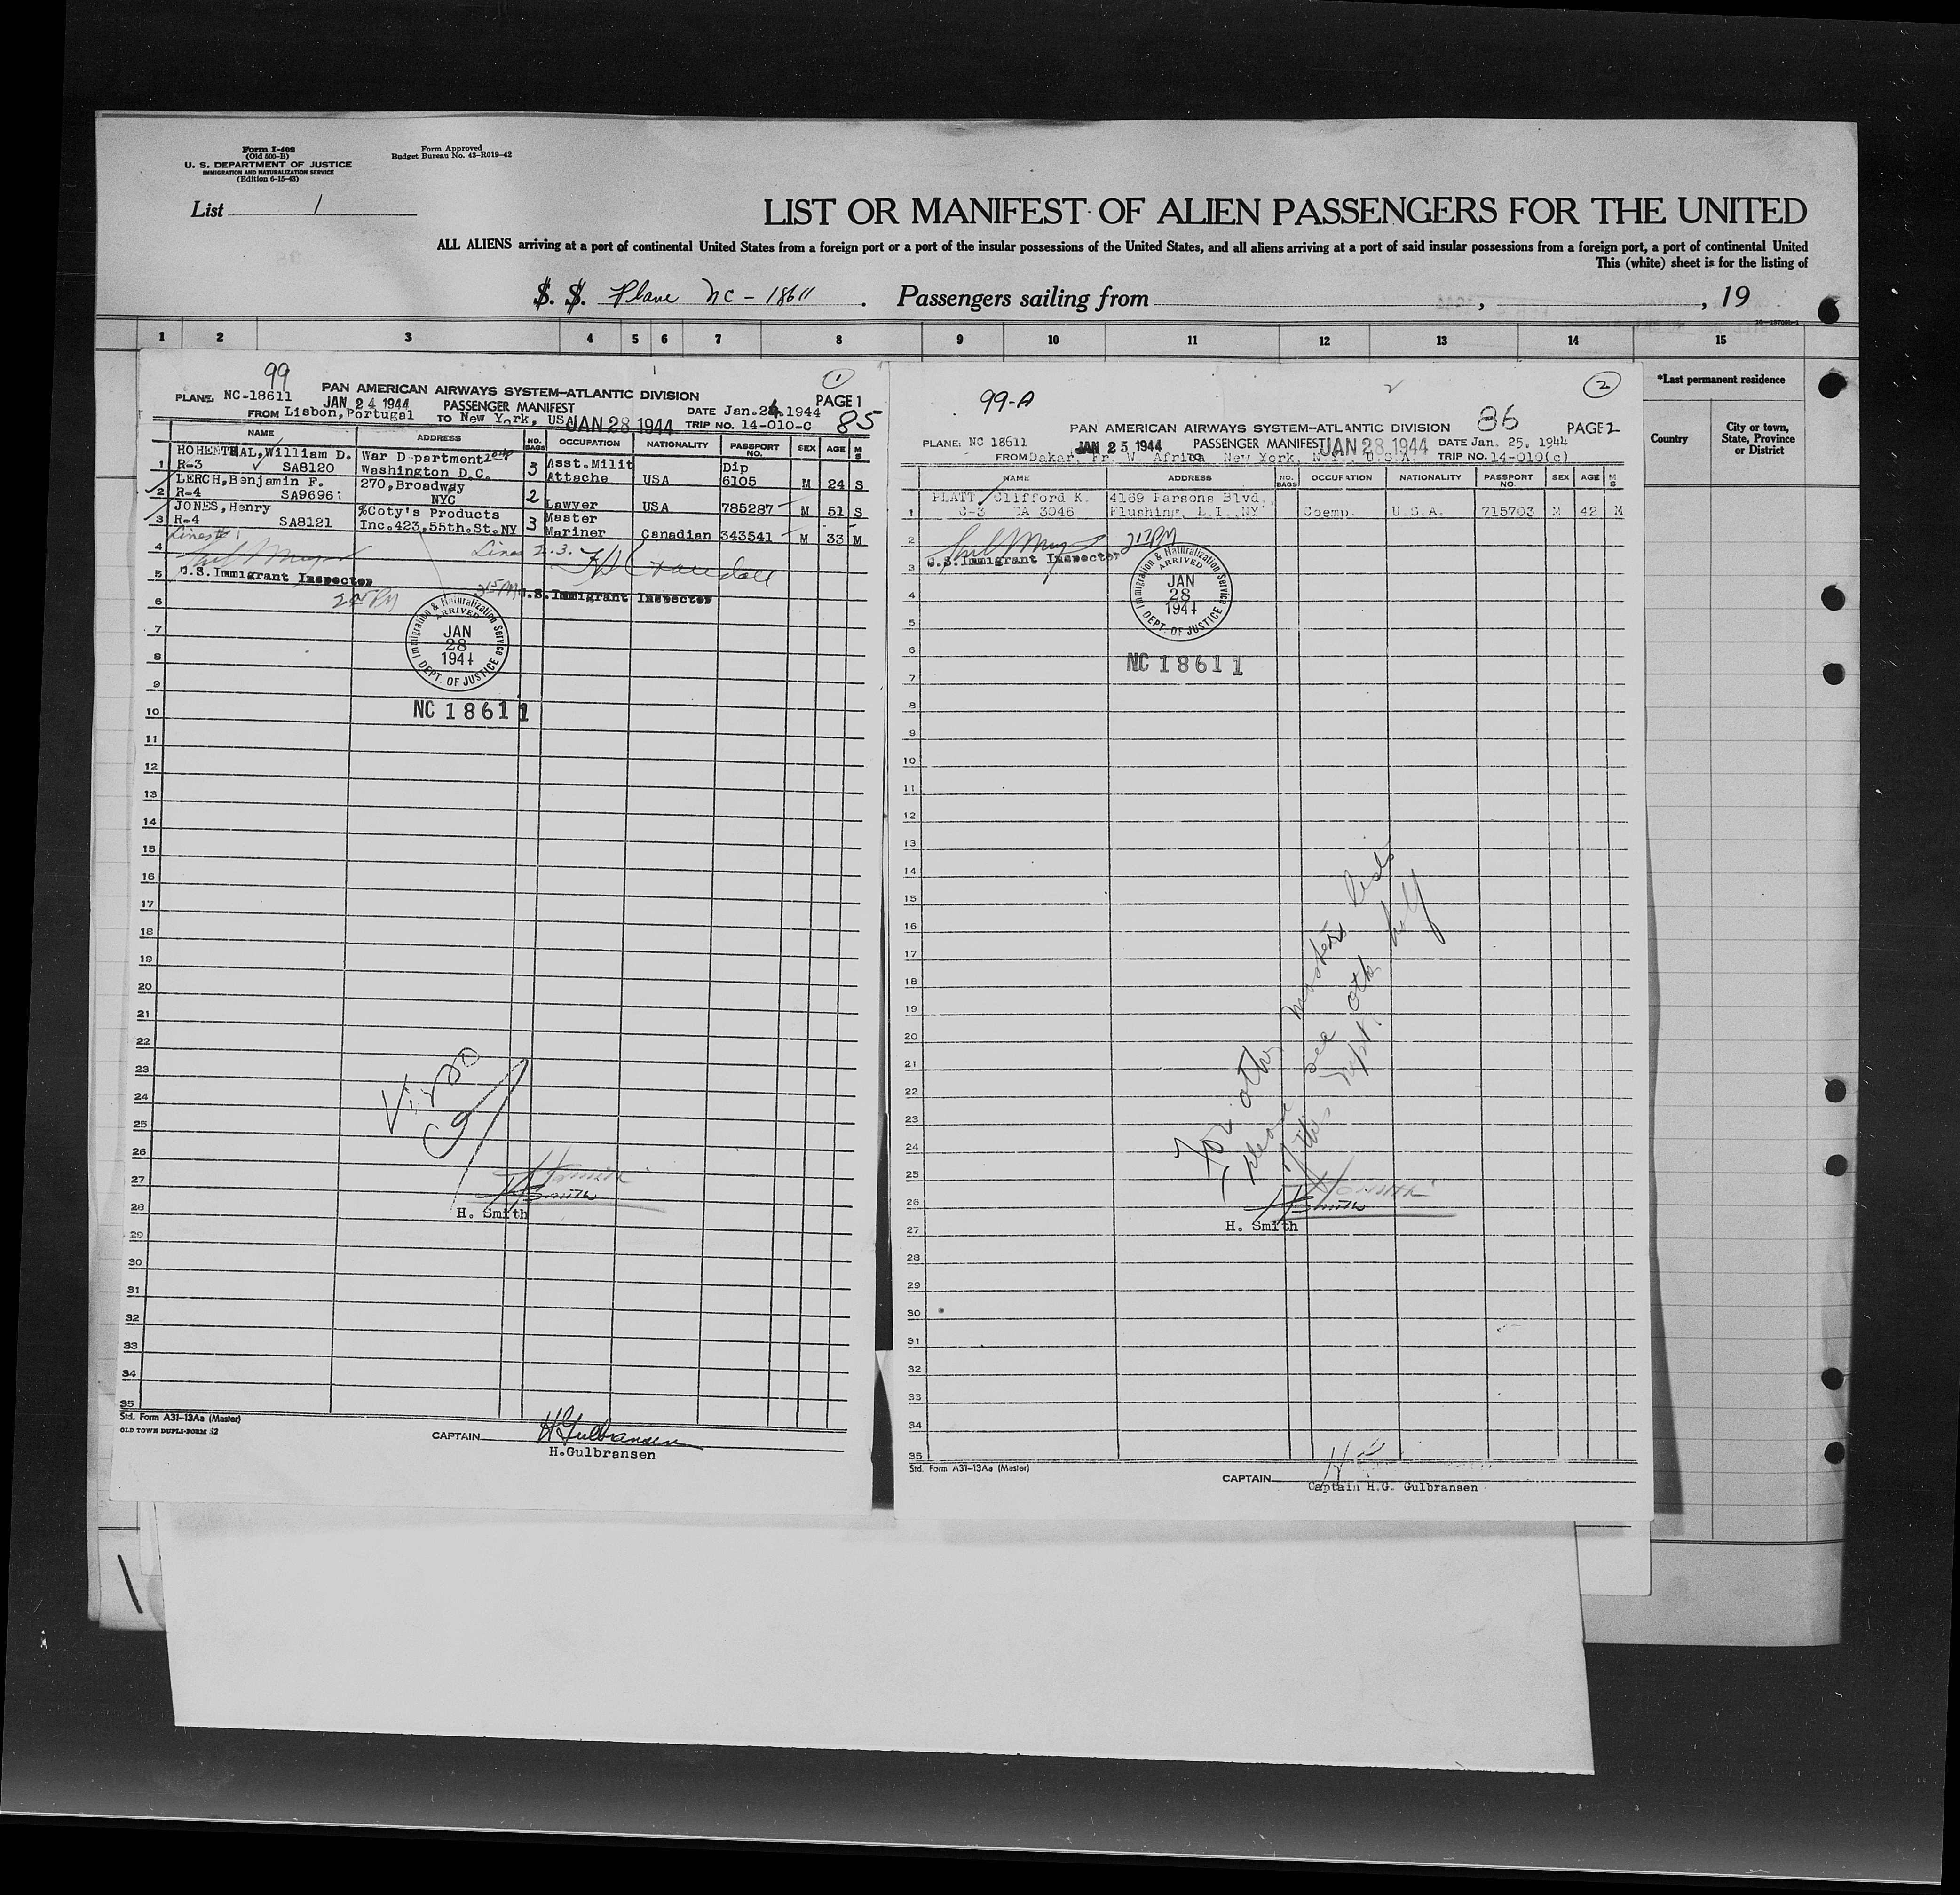 Form I-402
(Old 500-B)
U. S. DEPARTMENT OF JUSTICE
IMMIGRATION AND NATURALIZATION SERVICE
(Edition 6-15-43)
Form Approved
Budget Bureau No. 43-R019-42
List 1
LIST OR MANIFEST OF ALIEN PASSENGERS FOR THE UNITED
ALL ALIENS arriving at a port of continental United States from a foreign port or a port of the insular possessions of the United States, and all aliens arriving at a port of said insular possessions from a foreign port, a port of continental United
This (white) sheet is for the listing of
S. S. Plane NC-18611. Passengers sailing from , , 19
1 2 3 4 5 6 7 8 9 10 11 12 13 14 15
*Last permanent residence
Country
City or town, State, Province or District
99
1
PAN AMERICAN AIRWAYS SYSTEM-ATLANTIC DIVISION
PLANE NC-18611 JAN 24 1944 PASSENGER MANIFEST PAGE 1
FROM Lisbon, Portugal TO New York, US JAN 28 1944 DATE Jan. 24 1944 TRIP NO. 14-010-C 85
NAME ADDRESS NO. BAGS OCCUPATION NATIONALITY PASSPORT NO. SEX AGE M S
1 HOHENTHAL, William D. War D partment 3 Asst. Milit Dip
R-3 SA8120 Washington D.C. Attache USA 6105 M 24 S
2 LERCH, Benjamin F. 270, Broadway
R-4 SA9696 NYC 2 Lawyer USA 785287 M 51 S
3 JONES, Henry %Coty's Products 3 Master
R-4 SA8121 Inc. 423, 55th. St. NY Mariner Canadian 343541 M 33 M
Line 1
Lines 2.3.
U.S. Immigrant Inspector
U.S. Immigrant Inspector
Immigration & Naturalization Service
ARRIVED
JAN
28
1944
DEPT. OF JUSTICE
NC 18611
4
5
6
7
8
9
10
11
12
13
14
15
16
17
18
19
20
21
22
23
24
25
26
27
28
29
30
31
32
33
34
35
H Smith
H. Smith
Std. Form A31-13Aa (Master)
OLD TOWN DUPLI-FORM 52
CAPTAIN H Gulbransen
H. Gulbransen
99-A
2
2
86
PAN AMERICAN AIRWAYS SYSTEM-ATLANTIC DIVISION PAGE 2
PLANE NC 18611 JAN 25 1944 PASSENGER MANIFEST JAN 28 1944 DATE Jan. 25, 1944
FROM Dakar, Fr. W. Africa TO New York, N.Y. U.S.A. TRIP NO. 14-010(c)
NAME ADDRESS NO. BAGS OCCUPATION NATIONALITY PASSPORT NO. SEX AGE M S
PLATT, Clifford K. 4169 Parsons Blvd,
1 C-3 CA 3046 Flushing, L.I. NY Coemp. U.S.A. 715703 M 42 M
212 PM
U.S. Immigrant Inspector
Immigration & Naturalization Service
ARRIVED
JAN
28
1944
DEPT. OF JUSTICE
NC 18611
2
3
4
5
6
7
8
9
10
11
12
13
14
15
16
17
18
19
20
21
22
23
24
25
26
27
28
29
30
31
32
33
34
35
For other masters list
please see other half
of this rept.
H Smith
H. Smith
Std. Form A31-13Aa (Master)
CAPTAIN
Captain H.G. Gulbransen